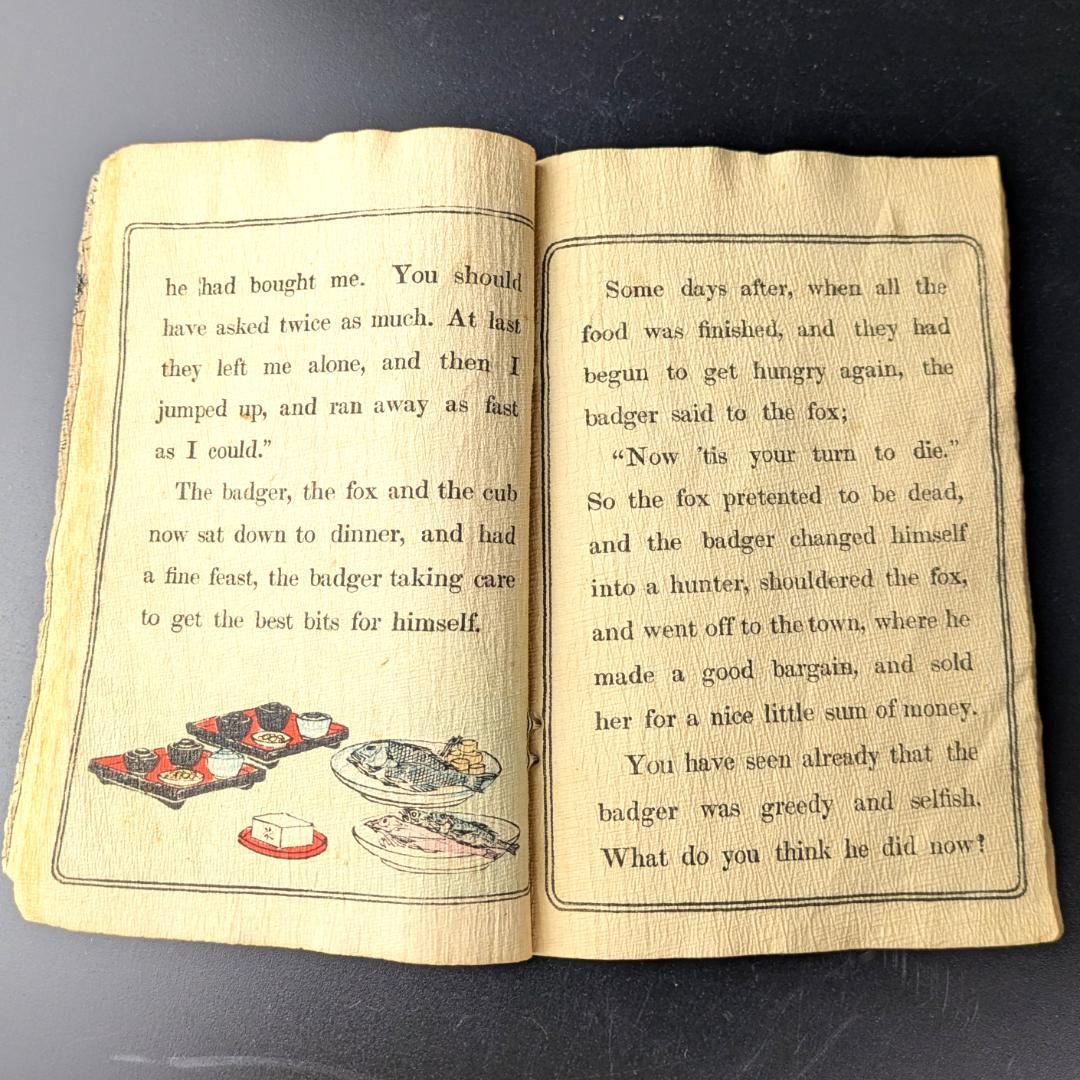 he had bought me. You should
have asked twice as much. At last
they left me alone, and then I
jumped up, and ran away as fast
as I could.”
The badger, the fox and the cub
now sat down to dinner, and had
a fine feast, the badger taking care
to get the best bits for himself.
Some days after, when all the
food was finished, and they had
begun to get hungry again, the
badger said to the fox;
“Now 'tis your turn to die.”
So the fox pretented to be dead,
and the badger changed himself
into a hunter, shouldered the fox,
and went off to the town, where he
made a good bargain, and sold
her for a nice little sum of money.
You have seen already that the
badger was greedy and selfish.
What do you think he did now?